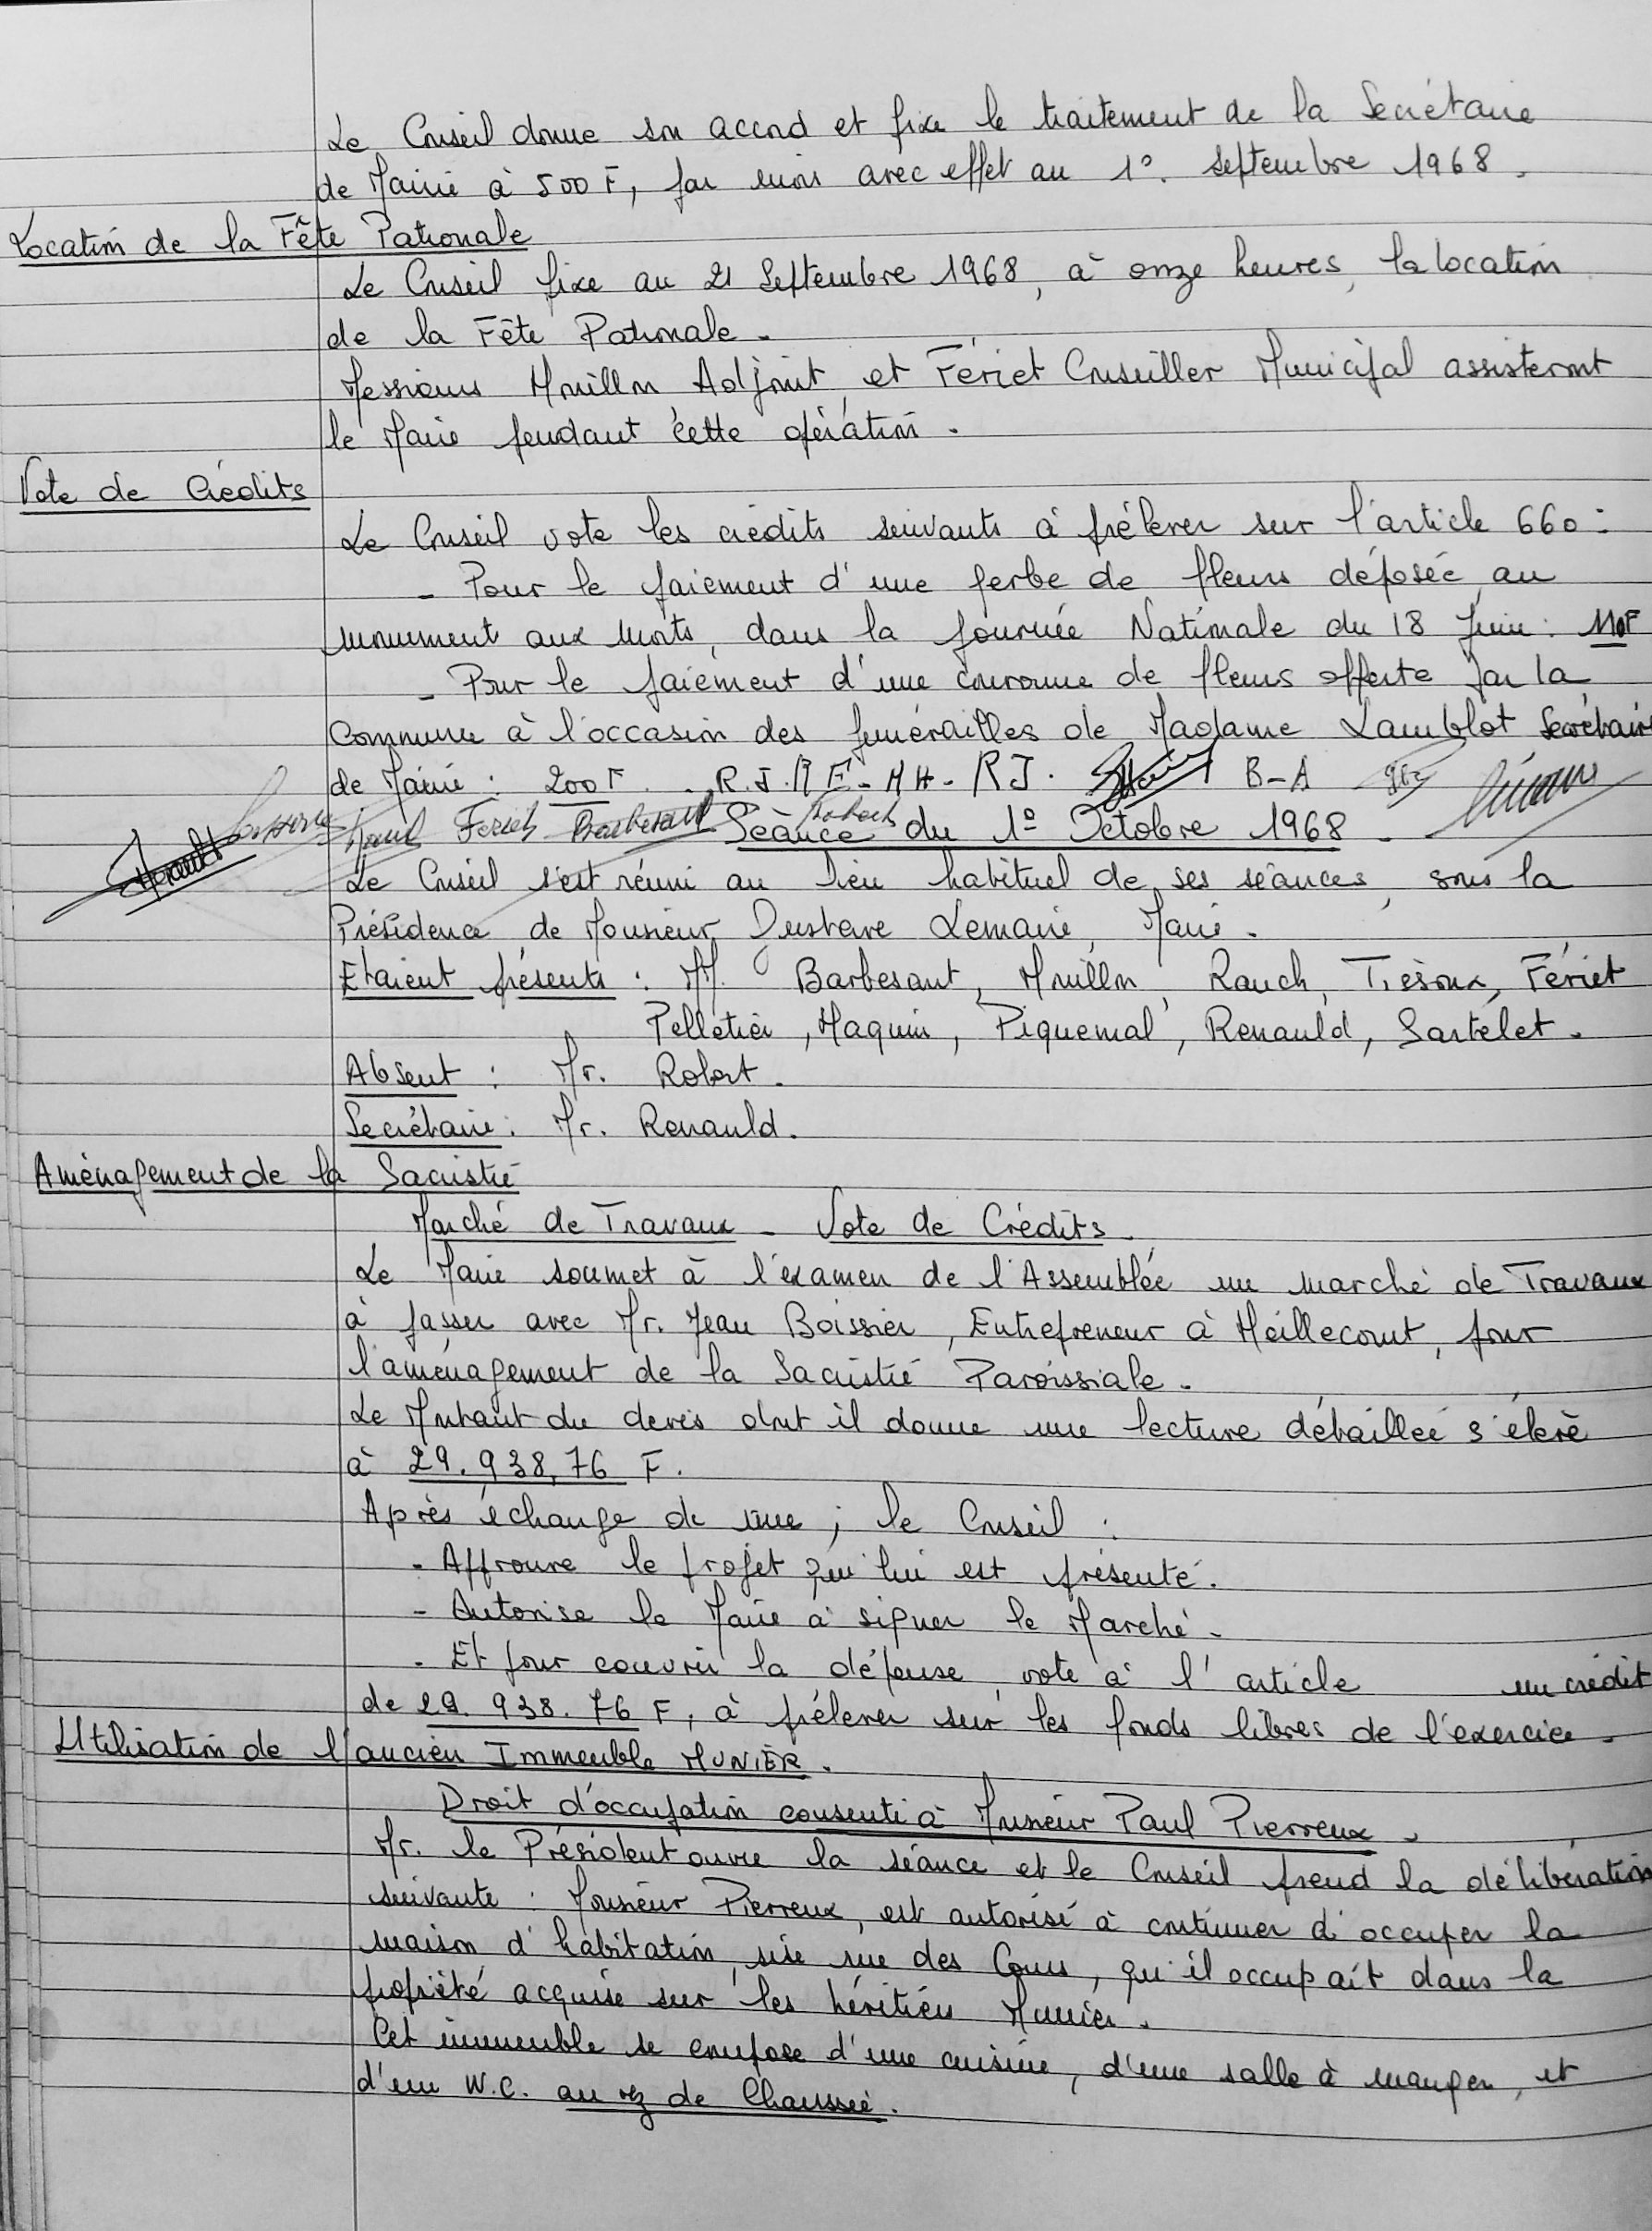 Le Conseil donne son accord et fixe le traitement de la Secrétaire
de Mairie à 500 F, par mois avec effet au 1°. Septembre 1968.
Location de la Fête Patronale
Le Conseil fixe au 21 Septembre 1968, à onze heures, la location
de la Fête Patronale.
Messieurs Mouillon Adjoint et Fériet Conseiller Municipal assisteront
le Maire pendant cette opération.
Vote de Crédits
Le Conseil vote les crédits suivants à prélever sur l'article 660:
- Pour le paiement d'une gerbe de fleurs déposée au
monument aux morts, dans la journée Nationale du 18 Juin: 110F
- Pour le paiement d'une couronne de fleurs offerte par la
commune à l'occasion des funérailles de Madame Lamblot Secrétaire
de Mairie: 200 F. - R.J. - M H - R J. B-A
Feriet Barbesant Robert Séance du 1° Octobre 1968.
Le Conseil s'est réuni au lieu habituel de ses séances, sous la
Présidence de Monsieur Gustave Lemaire, Maire.
Etaient présents: MM. Barbesant, Mouillon, Rauch, Trésoux, Fériet
Pelletier, Maquin, Piquemal, Renauld, Sartelet.
Absent: Mr. Robert.
Secrétaire: Mr. Renauld.
Aménagement de la Sacristie
Marché de Travaux - Vote de Crédits.
Le Maire soumet à l'examen de l'Assemblée un marché de Travaux
à passer avec Mr. Jean Boissier, Entrepreneur à Heillecourt, pour
l'aménagement de la Sacristie Paroissiale.
Le Montant du devis dont il donne une lecture détaillée s'élève
à 29.938,76 F.
Après échange de vue; le Conseil:
- Approuve le projet qui lui est présenté.
- Autorise le Maire à signer le Marché.
- Et pour couvrir la dépense, vote à l'article un crédit
de 29.938.76 F, à prélever sur les fonds libres de l'exercice.
Utilisation de l'ancien Immeuble MUNIER.
Droit d'occupation consenti à Monsieur Paul Pierreux.
Mr. le Président ouvre la séance et le Conseil prend la délibération
suivante: Monsieur Pierreux, est autorisé à continuer d'occuper la
maison d'habitation, sise rue des Cours, qu'il occupait dans la
propriété acquise sur les héritiers Munier.
Cet immeuble se compose d'une cuisine, d'une salle à manger, et
d'un W.C. au rez de Chaussée.